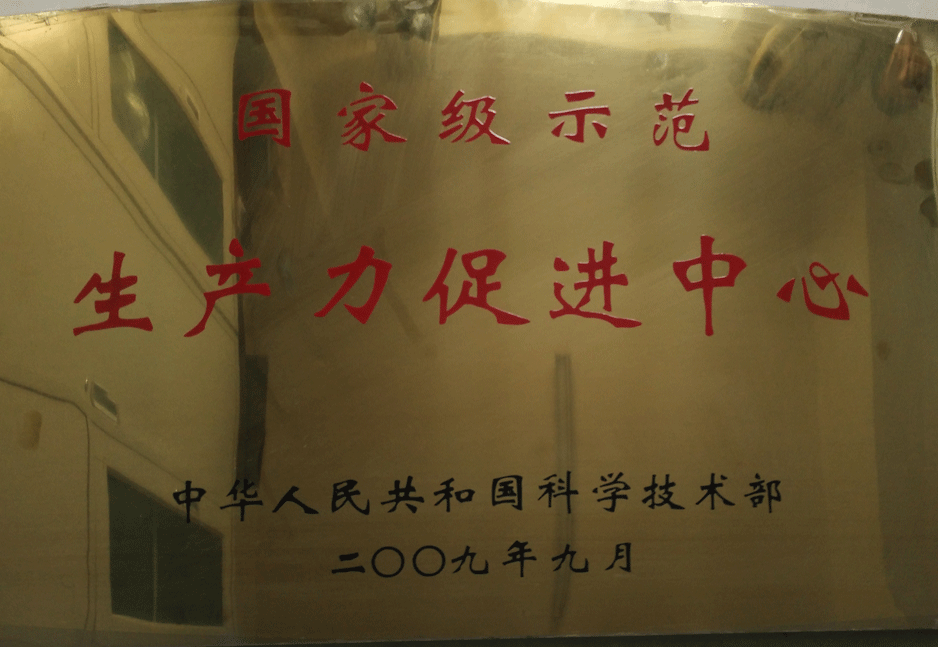 国家级示范
生产力促进中心
中华人民共和国科学技术部
二〇〇九年九月